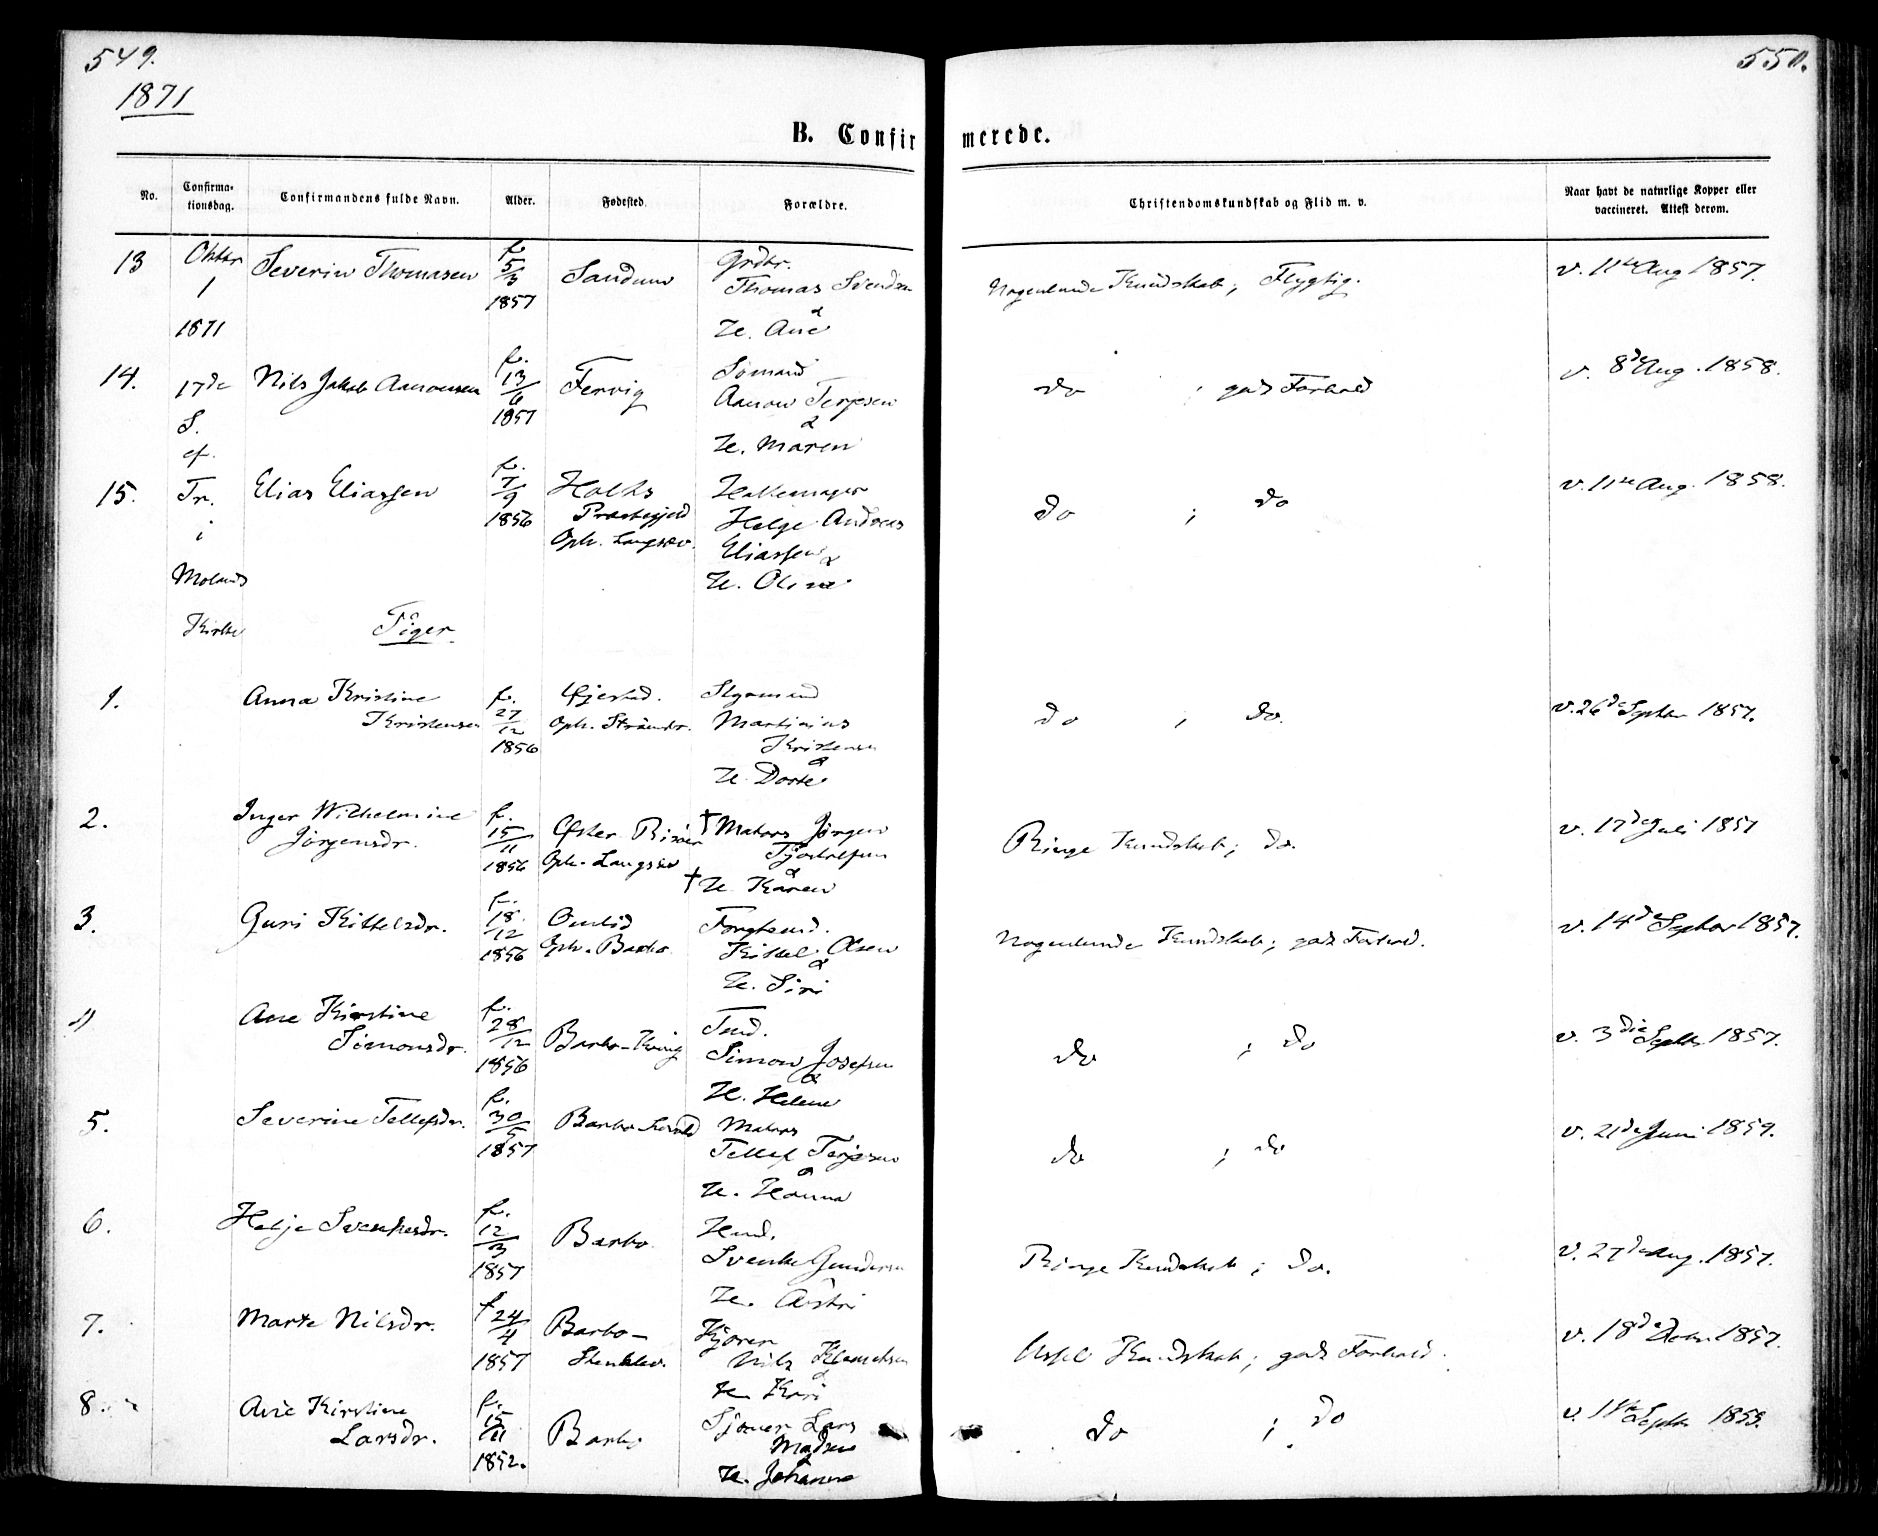 549.
550.
1871
B. Confirmerede.
No.
Confirma-
tionsdag.
Confirmandens fulde Navn.
Alder.
Fødested.
Forældre.
Christendomskundskab og Flid m. v.
Naar havt de naturlige Kopper eller
vaccineret. Attest derom.
13 Oktbr 1 1871 Severin Thomasen f. 5/3 1857 Sandum Grdbr.
Thomas Svendsen
&
H. Ane
Nogenlunde Kundskab; Flygtig. v. 11te Aug 1857.
14. 17de S. ef. Nils Jakob Aanonsen f. 13/6 1857 Fervig Sømand
Aanon Terjesen
&
H. Maren
do ; god Forhold v. 8de Aug. 1858.
15. Tr. i Molands Kirke Elias Eliassen f. 7/9 1856 Holts
Præstegjeld
Oph. Langsæv.
Helge Andreas
Eliassen &
H. Oline
do ; do v. 11te Aug. 1858.
Piger
1. Anna Kristine
Kristensen
f. 27/12 1856 Øjestad.
Oph. Strømsb.
Martinius
Kristensen
&
H. Dorte
do ; do. v. 26de Septbr 1857.
2. Inger Wilhelmine
Jörgensdr.
f. 15/11 1856 Øster Risøer
Oph. Langsæv
† Matros Jörgen
&
† H. Karen
Ringe Kundskab; do. v. 17de Juli 1857
3. Guri Kittelsdr. f. 18/12 1856 Omlid
Oph. Barbo
Kittel Olsen
&
H. Siri
Nogenlunde Kundskab; god Forhold. v. 14de Septbr 1857.
4 Ane Kirstine
Simonsdr.
f. 28/12 1856 Barbo-
Simon Josefsen
&
H. Helene
do ; do v. 3die Septbr 1857.
5. Severine Tellefsdr. f. 30/5 1857 Barbo
Matros
Tellef Terjesen
&
H. Hanna
do ; do v. 21de Juni 1859.
6. Helje Svenkesdr. f. 12/3 1857 Barbo Hmd.
Svenke Gundersen
H.
Ringe Kundskab; do. v. 27de Aug. 1857.
7. Marte Nilsdr. f. 24/4 1857 Barbo-
Stenklev.
Kjører
Nils
&
H. Kari
Kundskab; god Forhold. v. 18de 1857.
8. Ane Kirstine
Larsdr.
f. 15/11 1852. Barbo
Lars
Madsen
&
H. Johanne
do ; do v. Septbr 1853.